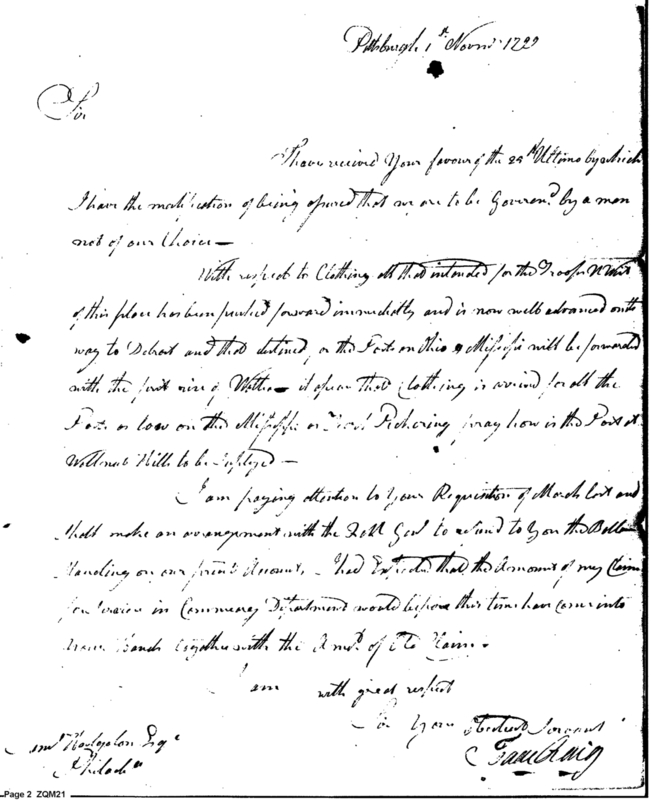 Pittsburgh 1st Novr 1799
Sir
I have received Your favour of the 25th Ultimo by which
I have the mortification of being apprised that we are to be Govern'd by a man
not of our Choice —
With respect to Clothing all that intended for the Troops N West
of this place has been pushed forward immediately and is now well advanced on its
way to Detroit and that destined for the Posts on Ohio & Mississippi will be forwarded
with the first rise of Water — it appears that Clothing is arrived for all the
Posts as low on the Mississippi as Fort Pickering pray how is the Post at
Wallnut Hills to be Supplyed —
I am paying attention to Your Requisition of March last and
shall make an arrangement with the Gel to refund to You the Ballance
Standing on our joint Account, I had Expected that the Amount of my Claim
for Services in Commissary Department would before this time have come into
Your Hands together with the Amt of Claim.
I am with great respect
Sir Your Obedient Servant
Isaac Craig
Saml Hodgdon Esqr
Philada
Page 2 ZQM21